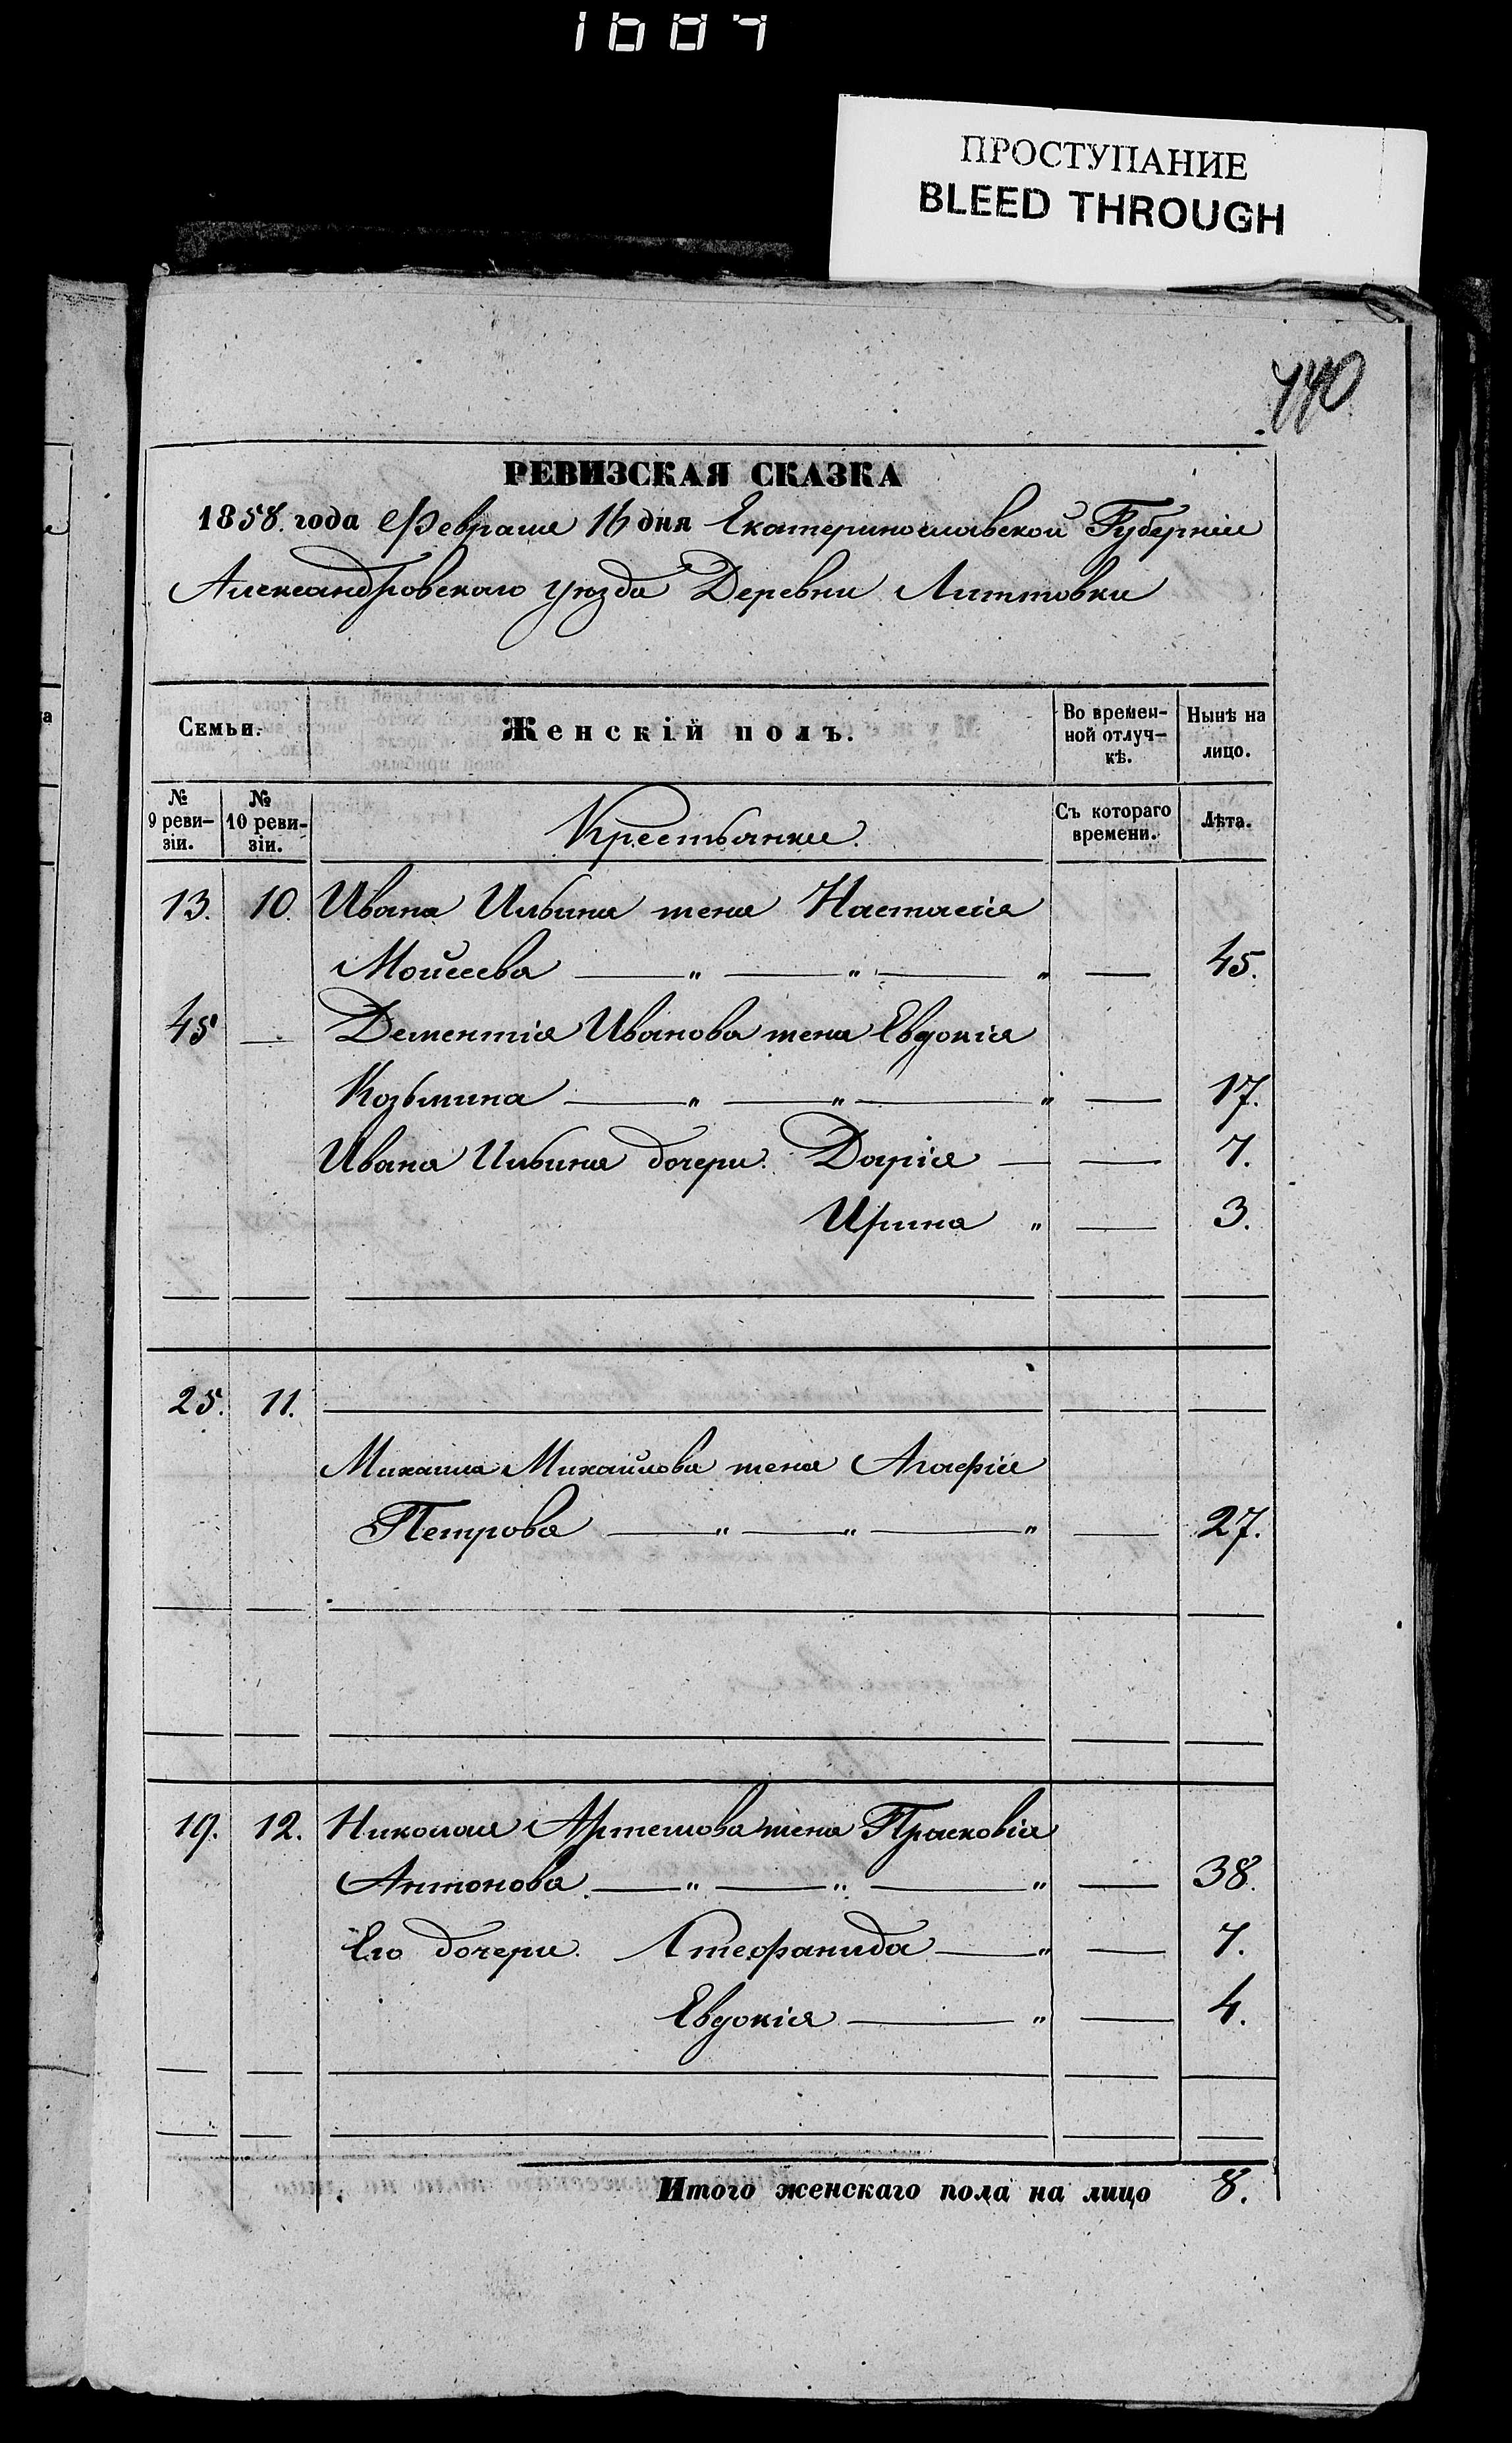 1607
ПРОСТУПАНИЕ
BLEED THROUGH
440
РЕВИЗСКАЯ СКАЗКА
1858. года Февраля 16 дня Екатеринославской Губерніи
Александровскаго уѣзда Деревни
Семьи.
Женскій полъ.
Во времен-
ной отлуч-
кѣ.
Нынѣ на
лицо.
№
9 реви-
зіи.
№
10 реви-
зіи.
Крестьянки.
Съ котораго
времени.
Лѣта.
13. 10. Ивана Ильина жена Настасія
Мойсеева — " — " — " — 45.
45 — Дементія Иванова жена Евдокія
Козьмина — " — " — " — 17.
Ивана Ильина дочери. Дарія — — 7.
Ирина " — 3.
25. 11.
Михаила Михайлова жена Агафія
Петрова — " — " — " — 27.
19. 12. Николая Артемова жена Прасковія
Антонова — " — " — " — 38.
Его дочери. Стефанида — " — 7.
Евдокія — " — 4.
Итого женскаго пола на лицо 8.